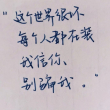 “这个世界很小
每个人都在装
我信你，
别骗我。”